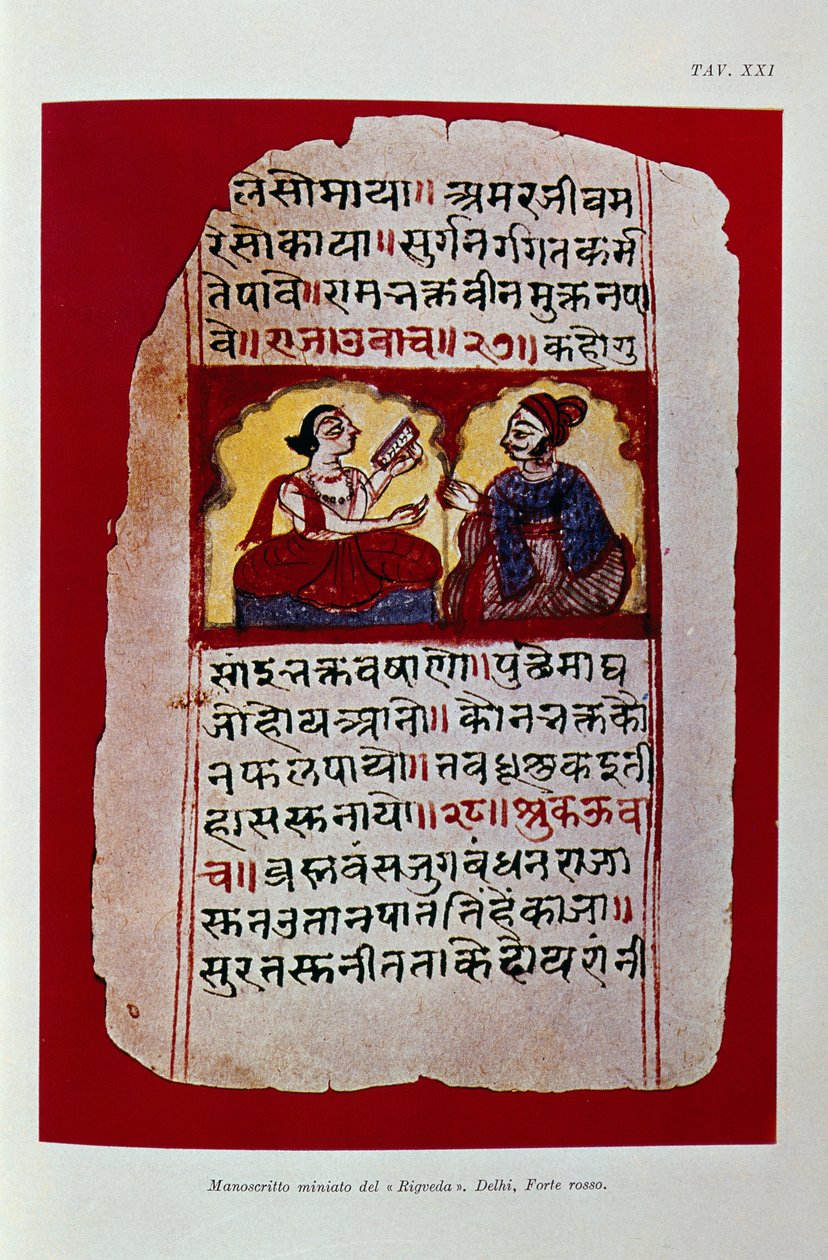 TAV. XXI
लसोमाया॥ अमरजीवम
रेसोकाया॥सुर्गनर्गगितकर्म
तेपावे॥रामनक्तवीनमुक्तनपा
वे॥राजाउवाच॥२७॥कहोगु
सांइनक्तवषाणो॥पुंछेमाघ
जोहोयअग्रानो॥ कोननक्तको
नफलपायो॥तवधूरुकइती
हाससुनायो॥२८॥श्रुकऊवा
च॥
सुतउतानपाततिंहेंकाजा॥
सुरतसुनीतताकेदोयरांनी
Manoscritto miniato del « Rigveda ». Delhi, Forte rosso.